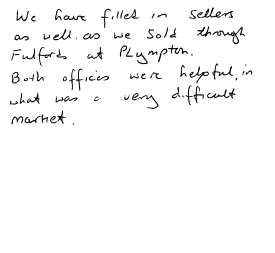 We have filled in sellers
as well as we sold through
Fulfords at Plympton.
Both offices were helpful, in
what was a very difficult
market.